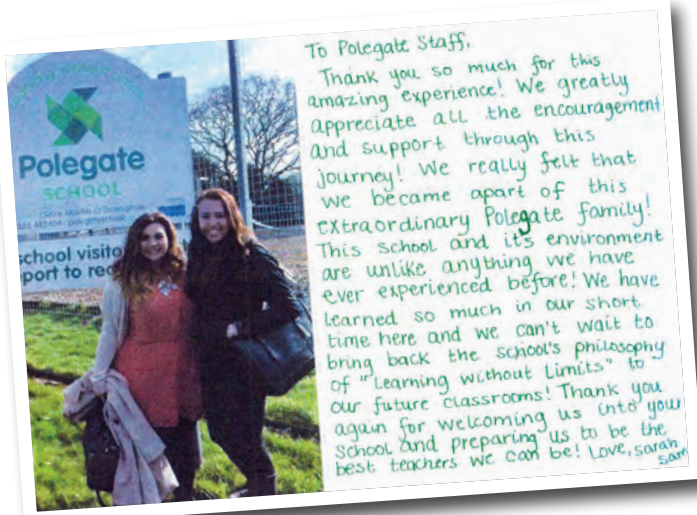 Polegate
SCHOOL
school visito
port to rec
To Polegate Staff,
Thank you so much for this
amazing experience! We greatly
appreciate all the encouragement
and support through this
journey! We really felt that
we became apart of this
extraordinary Polegate family!
This school and it's environment
are unlike anything we have
ever experienced before! We have
learned so much in our short
time here and we can't wait to
bring back the school's philosophy
of "Learning without Limits" to
our future classrooms! Thank you
again for welcoming us into your
school and preparing us to be the
best teachers we can be! Love, sarah
sam